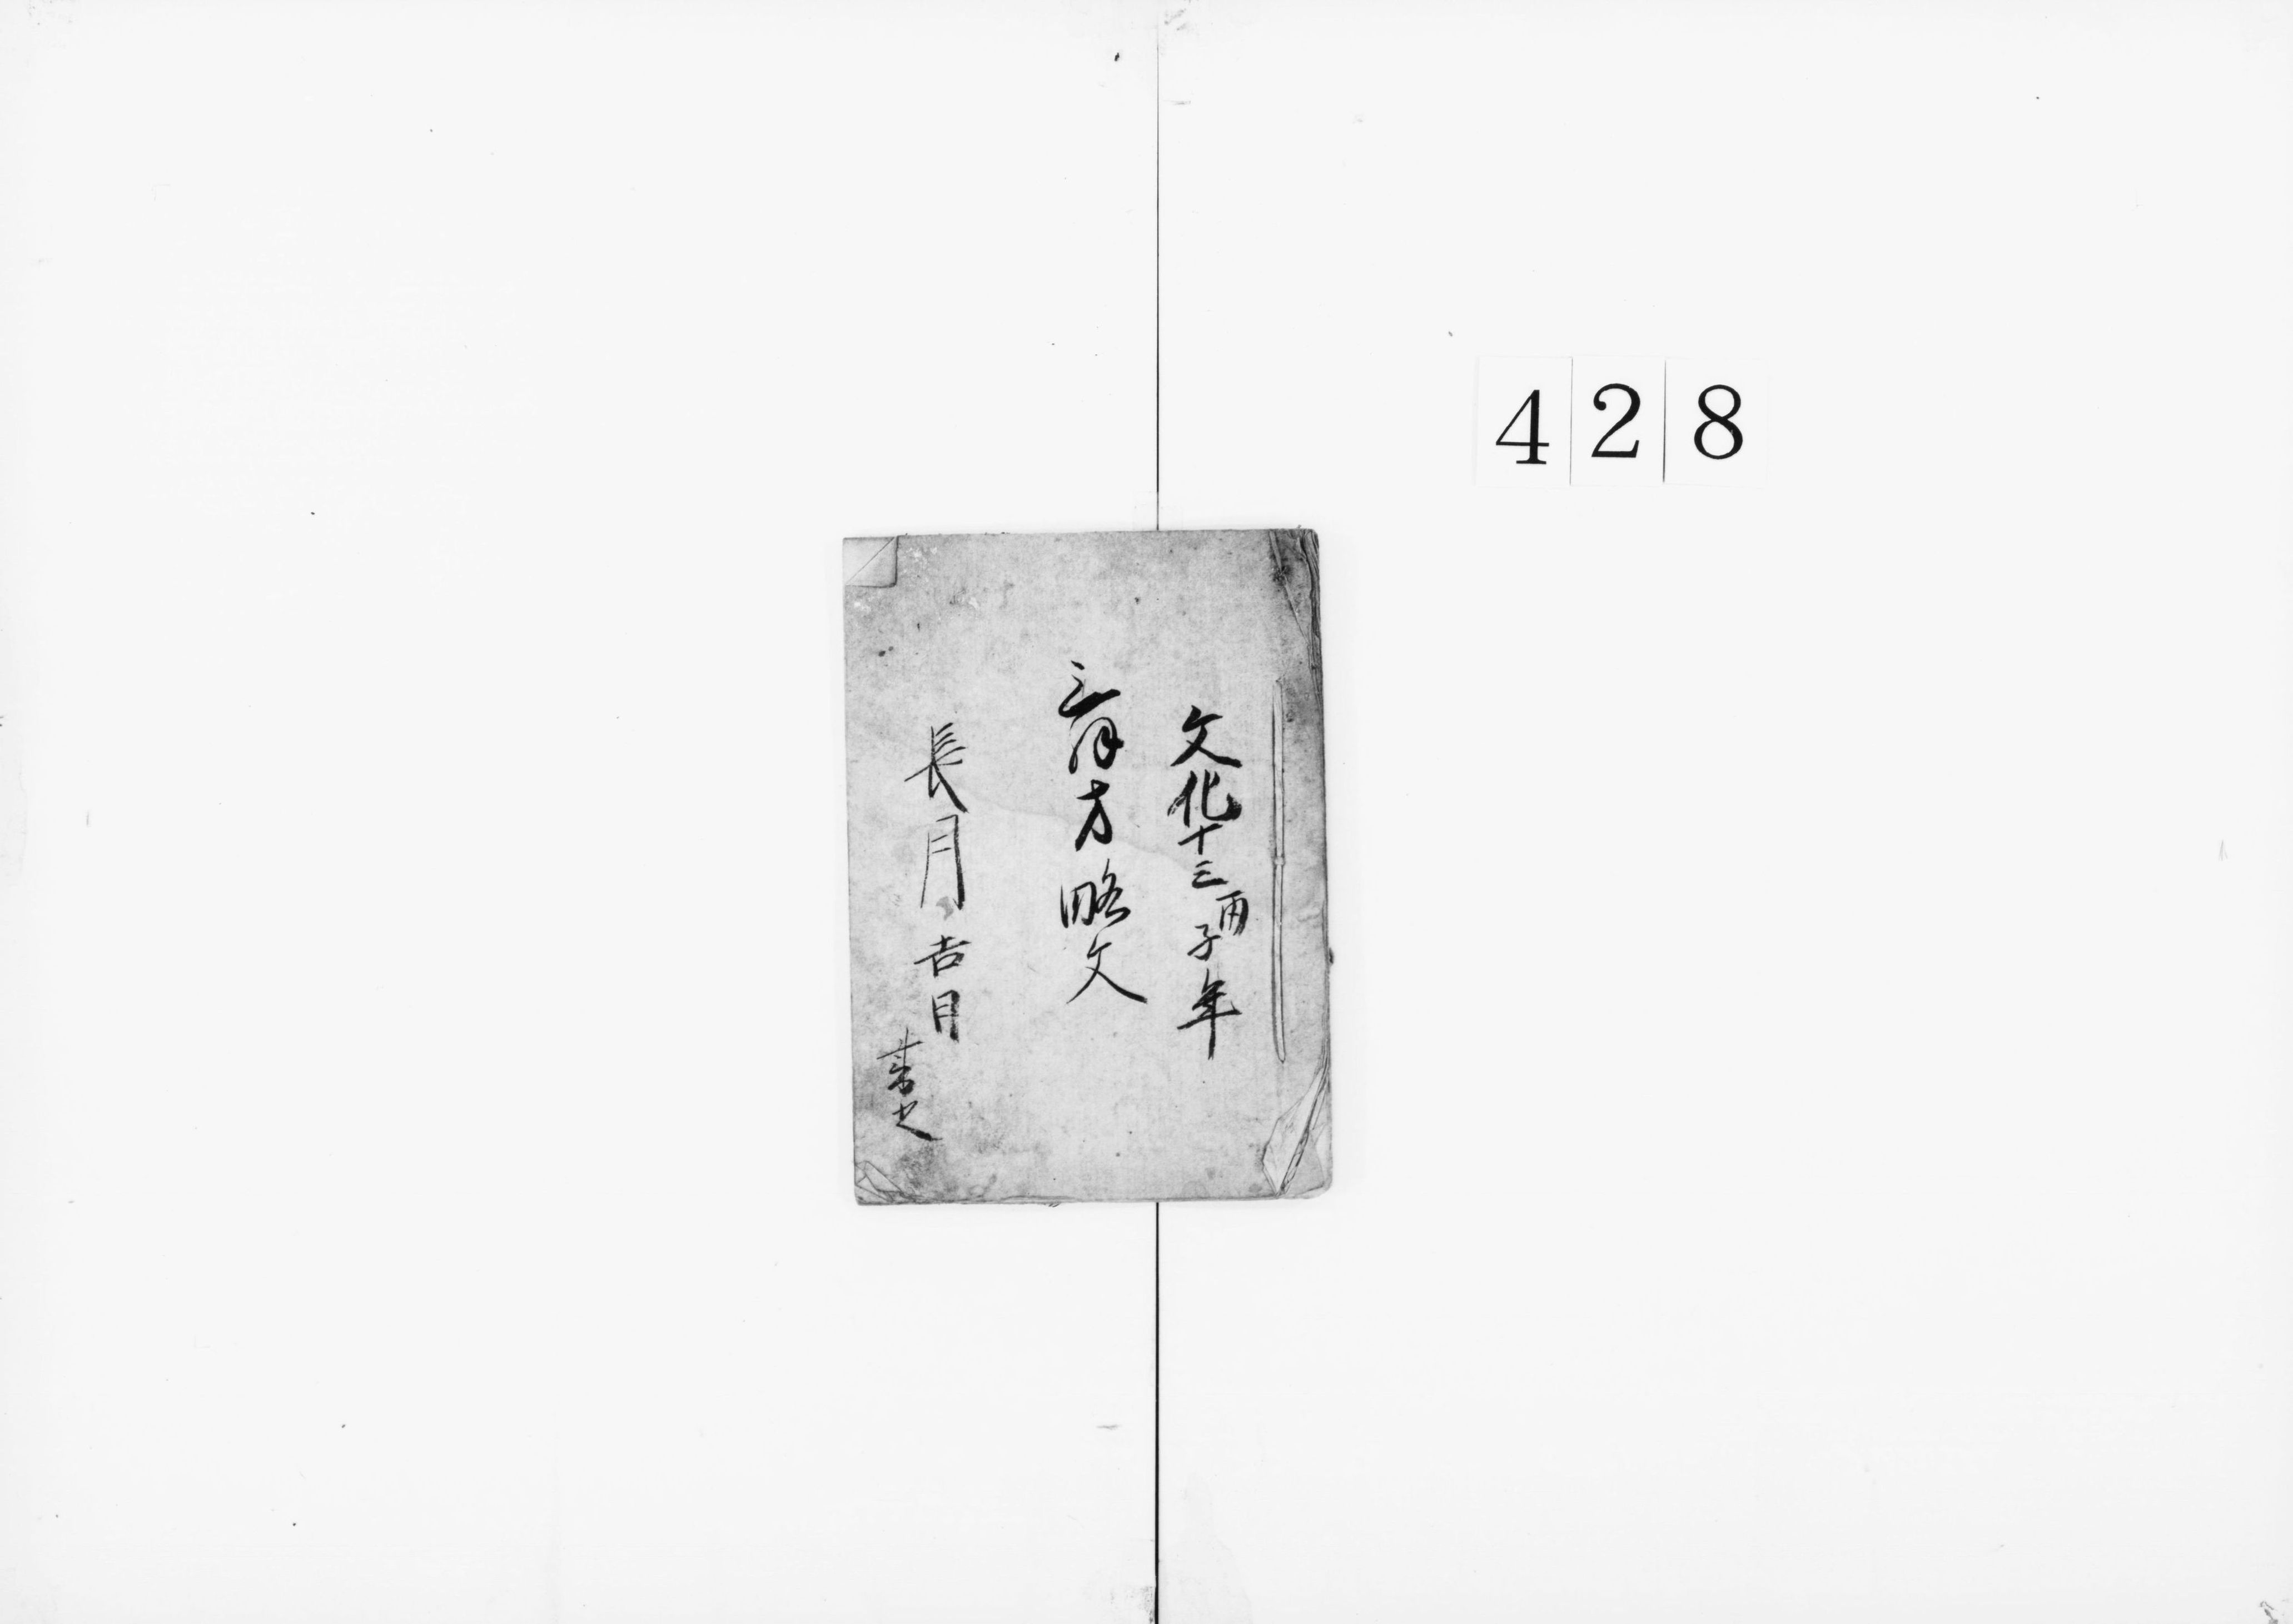 428
文化十三丙子年
方略文
長月吉日